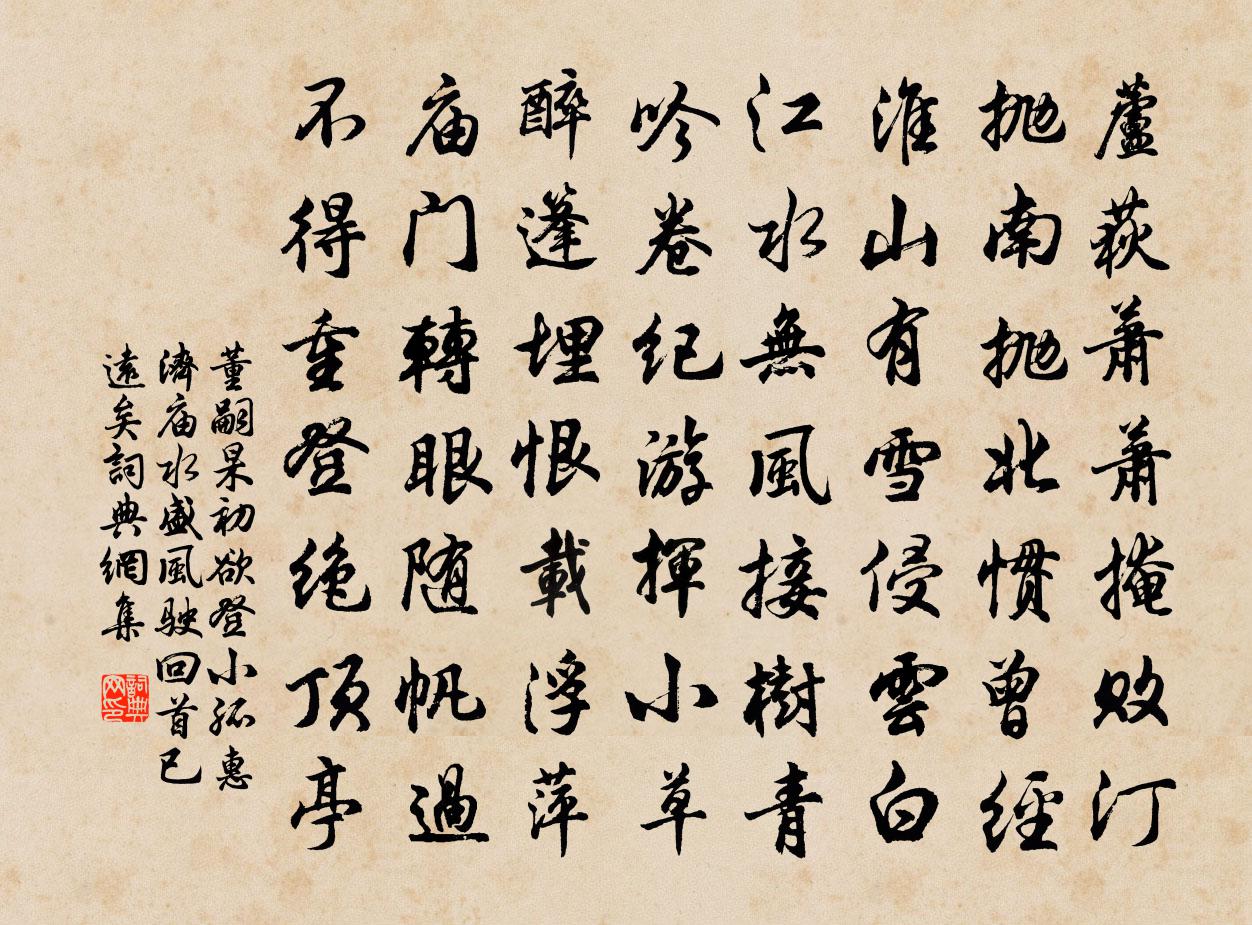 蘆荻蕭蕭掩敗汀
抛南抛北慣曾經
淮山有雪侵雲白
江水無風接樹青
吟卷紀游揮小草
醉篷埋恨載浮萍
庙门轉眼随帆過
不得重登絶顶亭
董嗣杲初欲登小孤惠
濟庙水盛風駛回首已
遠矣詞典網集
詞典网印